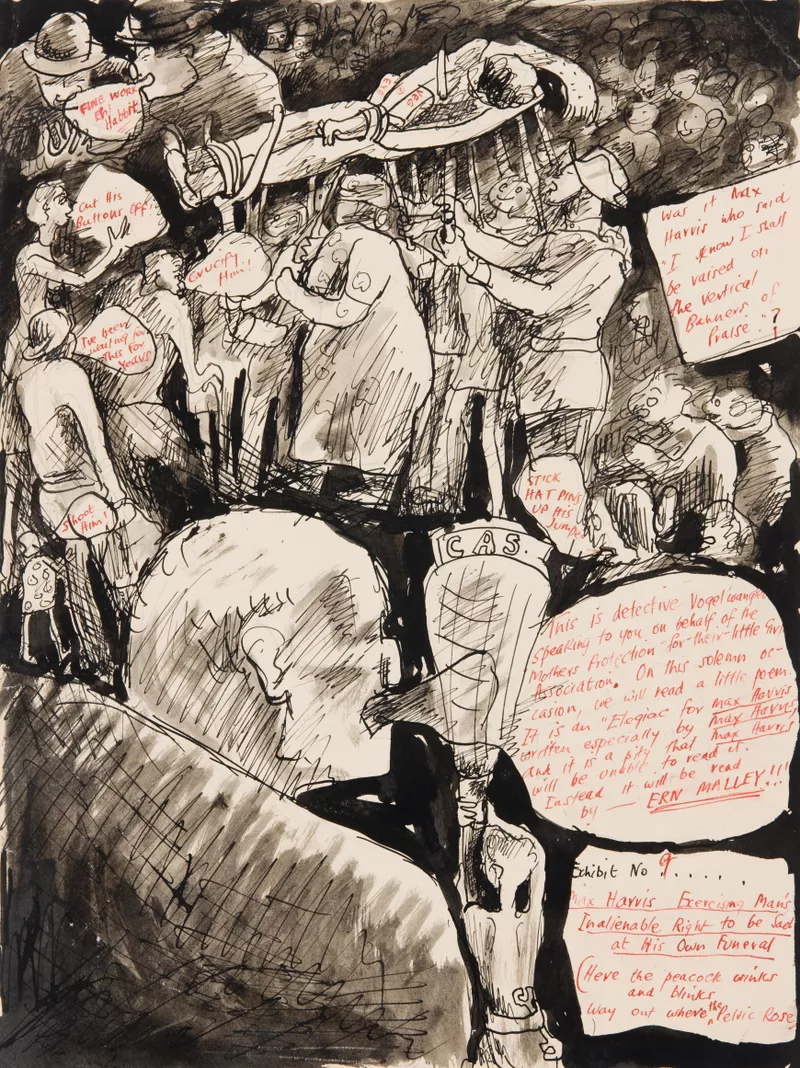 FINE WORK
Eh!
Habbit
Cut His
Buttons Off!
Crucify
Him!
I've been
waiting for
This For
Years
Shoot
Him!
Was it Max
Harris who said
"I know I shall
be raised on
the vertical
Banners of
Praise."?
STICK
HAT PINS
UP HIS
Jumper
C A S.
This is detective Vogelswanger
Speaking to you on behalf of the
Mothers Protection-for-their-little Girls
Association. On this solemn oc-
casion, we will read a little poem.
It is an "Elegiac for Max Harris
written especially by Max Harris
and it is a pity that Max Harris
will be unable to read it.
Instead it will be read
by — ERN MALLEY!!!
Exhibit No 9......
Max Harris Exercising Man's
Inalienable Right to be Sad
at His Own Funeral
(Here the peacock winks
and blinks
way out where the Pelvic Rose